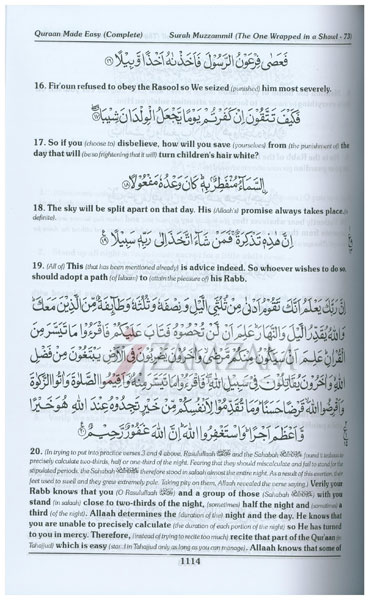 Quraan Made Easy (Complete) Surah Muzzammil (The One Wrapped in a Shawl - 73)
فَعَصٰى فِرْعَوْنُ الرَّسُوْلَ فَاَخَذْنٰهُ اَخْذًا وَّبِيْلًا ﴿١٦﴾
16. Fir'oun refused to obey the Rasool so We seized (punished) him most severely.
فَكَيْفَ تَتَّقُوْنَ اِنْ كَفَرْتُمْ يَوْمًا يَّجْعَلُ الْوِلْدَانَ شِيْبًا ﴿١٧﴾
17. So if you (choose to) disbelieve, how will you save (yourselves) from (the punishment of) the
day that will (be so frightening that it will) turn children's hair white?
اِۨلسَّمَآءُ مُنْفَطِرٌۢ بِهٖ ؕ كَانَ وَعْدُهٗ مَفْعُوْلًا ﴿١٨﴾
18. The sky will be split apart on that day. His (Allaah's) promise always takes place (is
definite).
اِنَّ هٰذِهٖ تَذْكِرَةٌ ۚ فَمَنْ شَآءَ اتَّخَذَ اِلٰى رَبِّهٖ سَبِيْلًا ﴿١٩﴾
19. (All of) This (that has been mentioned already) is advice indeed. So whoever wishes to do so,
should adopt a path (of Islaam) to (attain the pleasure of) his Rabb.
اِنَّ رَبَّكَ يَعْلَمُ اَنَّكَ تَقُوْمُ اَدْنٰى مِنْ ثُلُثَىِ الَّيْلِ وَنِصْفَهٗ وَثُلُثَهٗ وَطَآئِفَةٌ مِّنَ الَّذِيْنَ مَعَكَ ؕ
وَاللّٰهُ يُقَدِّرُ الَّيْلَ وَالنَّهَارَ ؕ عَلِمَ اَنْ لَّنْ تُحْصُوْهُ فَتَابَ عَلَيْكُمْ فَاقْرَءُوْا مَا تَيَسَّرَ مِنَ
الْقُرْاٰنِ ؕ عَلِمَ اَنْ سَيَكُوْنُ مِنْكُمْ مَّرْضٰى ۙ وَاٰخَرُوْنَ يَضْرِبُوْنَ فِى الْاَرْضِ يَبْتَغُوْنَ مِنْ فَضْلِ
اللّٰهِ ۙ وَاٰخَرُوْنَ يُقَاتِلُوْنَ فِىْ سَبِيْلِ اللّٰهِ ۖ فَاقْرَءُوْا مَا تَيَسَّرَ مِنْهُ ۙ وَاَقِيْمُوا الصَّلٰوةَ وَاٰتُوا الزَّكٰوةَ
وَاَقْرِضُوا اللّٰهَ قَرْضًا حَسَنًا ؕ وَمَا تُقَدِّمُوْا لِاَنْفُسِكُمْ مِّنْ خَيْرٍ تَجِدُوْهُ عِنْدَ اللّٰهِ هُوَ خَيْرًا
وَّاَعْظَمَ اَجْرًا ؕ وَاسْتَغْفِرُوا اللّٰهَ ؕ اِنَّ اللّٰهَ غَفُوْرٌ رَّحِيْمٌ ﴿٢٠﴾
20. (In trying to put into practice verses 3 and 4 above, Rasulullaah and the Sahabah found it tedious to
precisely calculate two-thirds, half or one-third of the night. Fearing that they should miscalculate and fail to stand for the
stipulated periods, the Sahabah therefore stood in salaah almost the entire night. As a result of this exertion, their
feet used to swell and they grew extremely pale. Taking pity on them, Allaah revealed the same saying.) Verily your
Rabb knows that you (O Rasulullaah) and a group of those (Sahabah) with you
stand (in salaah) close to two-thirds of the night, (sometimes) half the night and (sometimes) a
third (of the night). Allaah determines the (duration of the) night and the day. He knows that
you are unable to precisely calculate (the duration of each portion of the night) so He has turned
to you in mercy. Therefore, (instead of trying to recite too much) recite that part of the Qur'aan (in
Tahajjud) which is easy (stand in Tahajjud only as long as you can manage). Allaah knows that some of
1114